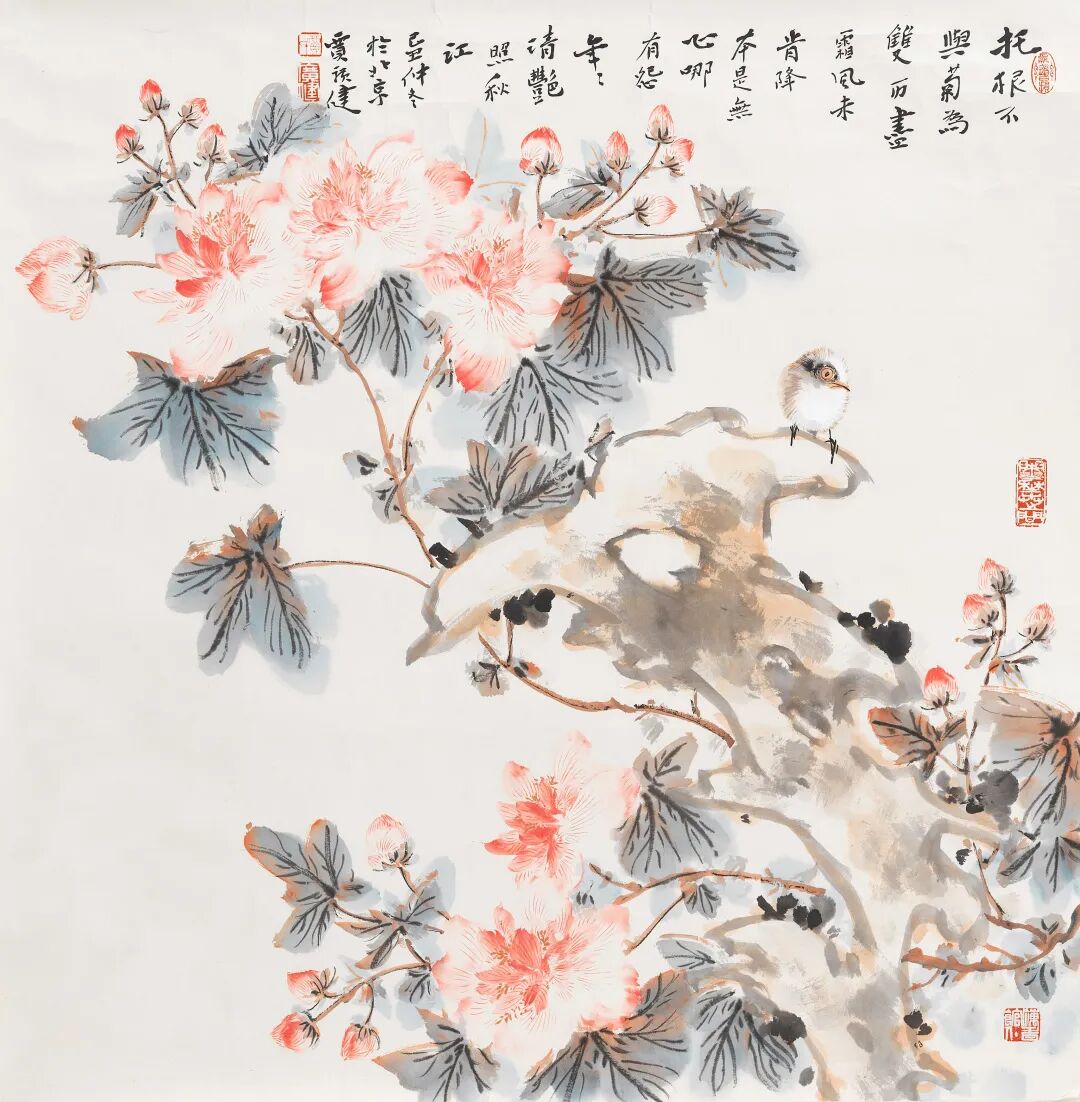 托根不
與菊為
雙历盡
霜風未
肯降
本是無
心哪
有怨
年々
清艷
照秋
江
己丑仲冬
於北京
賈廣健